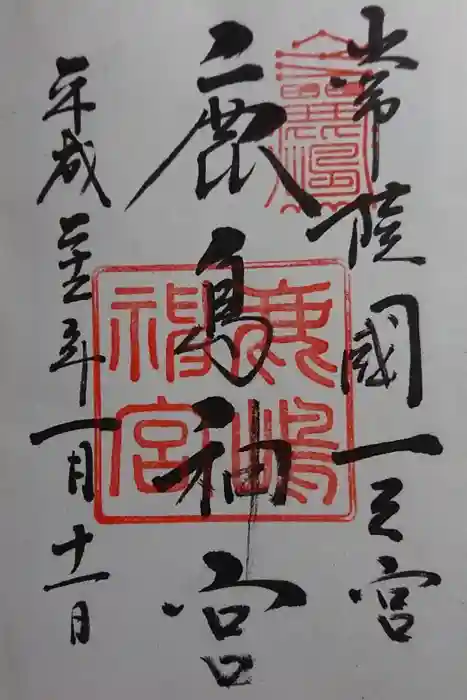 常陸國一之宮
鹿島神宮
平成二十五年一月十一日
鹿嶋
神宮